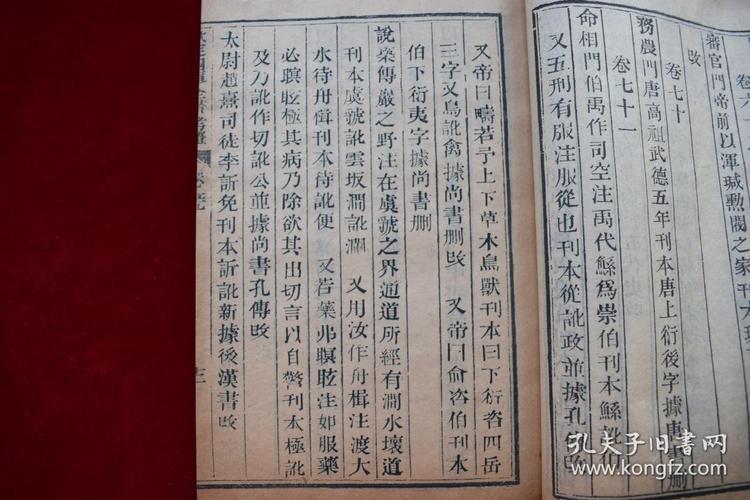 審官門帝前以渾瑊勲閥之家刊本
改
卷七十
務農門唐高祖武德五年刊本唐上衍後字據唐書刪
卷七十一
命相門伯禹作司空注禹代鯀爲崇伯刊本鯀訛
又五刑有服注服從也刊本從訛政並據孔傳改
又帝曰疇若予上下草木鳥獸刊本曰下衍咨四岳
三字又鳥訛禽據尚書刪改　又帝曰俞咨伯刊本
伯下衍夷字據尚書刪
說築傅巖之野注在虞虢之界通道所經有澗水壞道
刊本虞虢訛雲坂澗訛澜　又用汝作舟楫注渡大
水待舟楫刊本待訛便　又若藥弗瞑眩注如服藥
必瞑眩極其病乃除欲其出切言以自警刊本極訛
及刀訛作切訛公並據尚書孔傳改
太尉趙熹司徒李訢免刊本訢訛新據後漢書改
孔夫子旧书网
www.kongfz.com